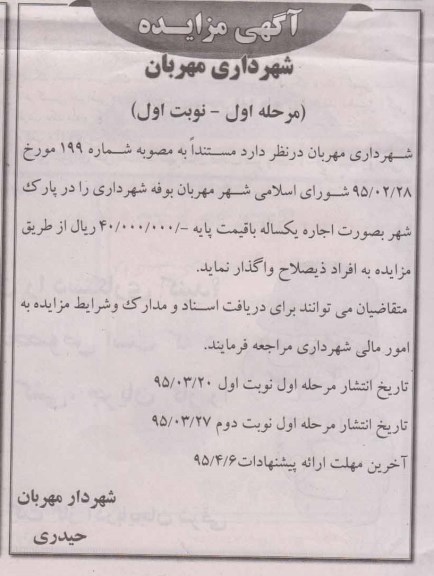 آگهی مزایده
شهرداری مهربان
(مرحله اول - نوبت اول)
شهرداری مهربان درنظر دارد مستنداً به مصوبه شماره ۱۹۹ مورخ
۹۵/۰۲/۲۸ شورای اسلامی شهر مهربان بوفه شهرداری را در پارک
شهر بصورت اجاره یکساله باقیمت پایه -/۴۰/۰۰۰/۰۰۰ ریال از طریق
مزایده به افراد ذیصلاح واگذار نماید.
متقاضیان می توانند برای دریافت اسناد و مدارک وشرایط مزایده به
امور مالی شهرداری مراجعه فرمایند.
تاریخ انتشار مرحله اول نوبت اول ۹۵/۰۳/۲۰
تاریخ انتشار مرحله اول نوبت دوم ۹۵/۰۳/۲۷
آخرین مهلت ارائه پیشنهادات۹۵/۴/۶
شهردار مهربان
حیدری